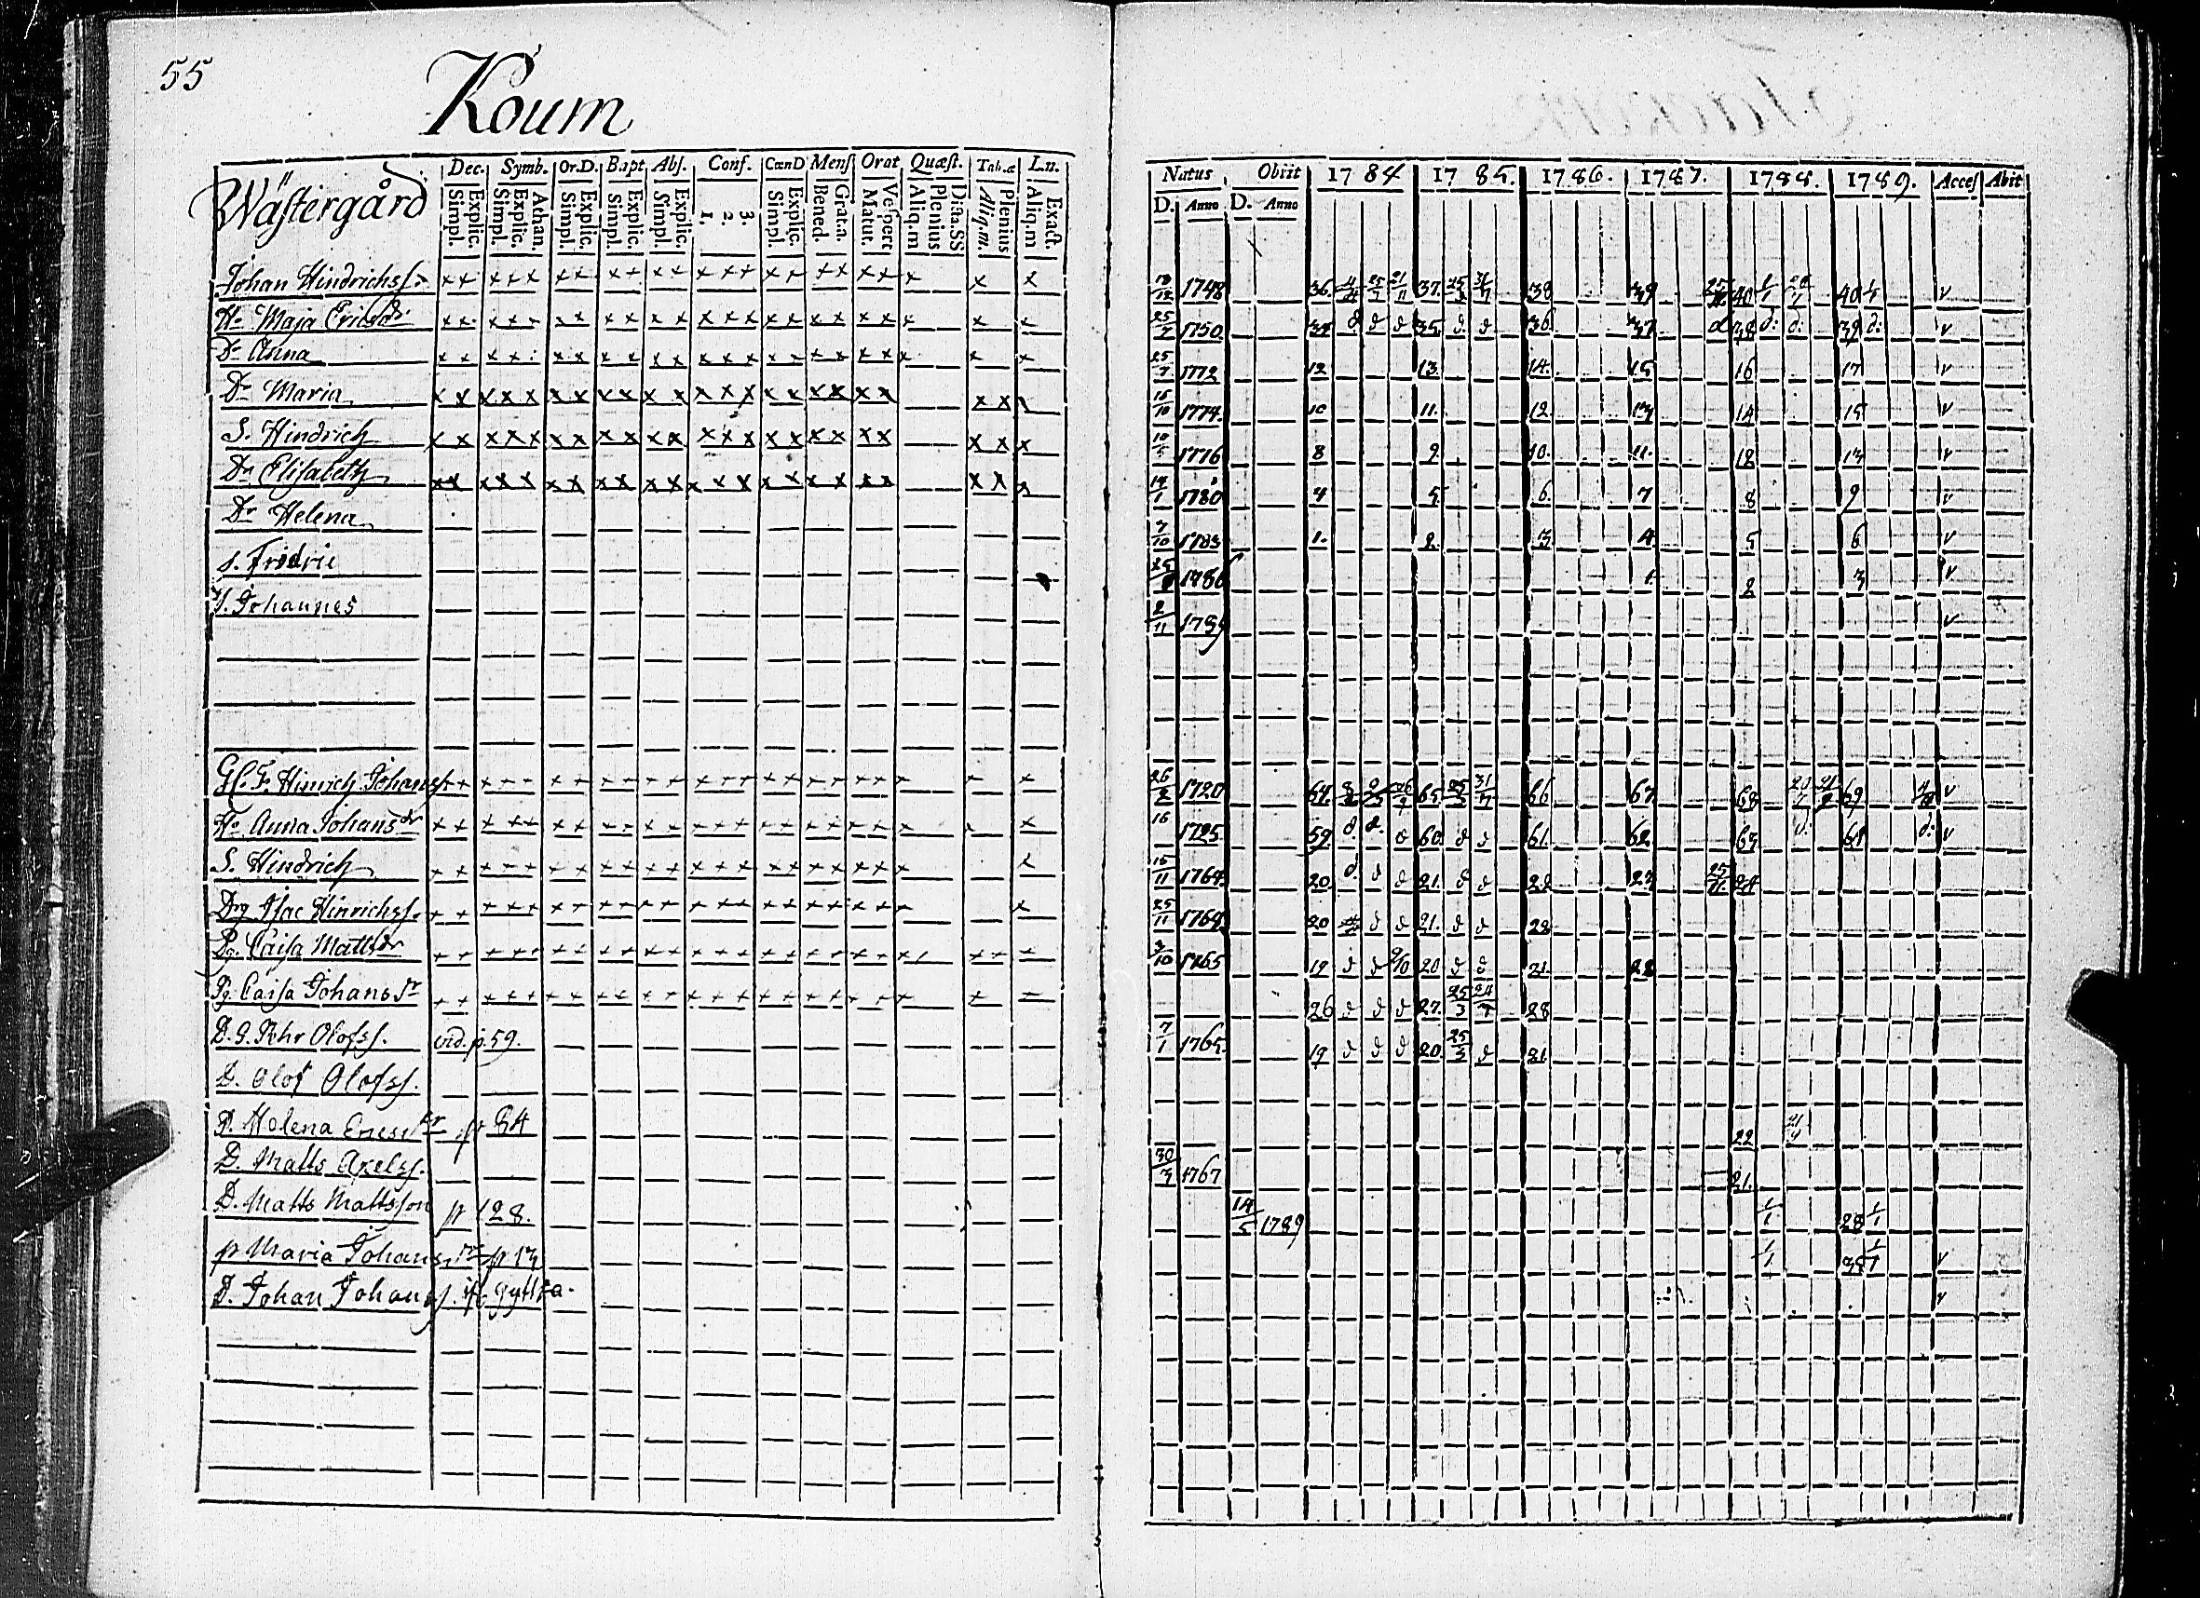 55
Koum
Wästergård
Dec. Symb. Or.D. Bapt Abs. Conf. CœnD Mens Orat Quæst. Tab.æ L.n.
Simpl. Explic. Simpl. Explic. Athan. Simpl. Explic. Simpl. Explic. Simpl. Explic. 1. 2. 3. Simpl. Explic. Bened. Grat.a. Matut. Vespert Aliq.m Plenius Dicta.SS Aliq.m. Plenius Aliq.m Exact.
Johan Hindrichss.
Hu Maja Ericsdr
Dr Anna
Dr Maria
S. Hindrich
Dr Elisabeth
Dr Helena
s. Fredric
S. Johannes
Gl. F. Hinrich Johanss
Hu Anna Johansdr
S. Hindrich
Drg Isac Hinrichss.
Pg. Caisa Mattsdr
Pg. Caisa Johansdr
D.g. Pehr Olofss. vid. p. 59.
D. Olof Olofss.
P. Helena Ericsdr 84
D. Matts Axelss.
D. Matts Mattsson p 128.
p Maria Johansdr p 13
D. Johan Johanss. Gyltza.
Natus Obiit 1784 1785. 1786. 1787. 1788. 1789. Acces Abit
D. Anno D. Anno
18/12 1748 36. 37. 38 39 40 40 v
25/2 1750. 34 d d d 35. d. d 36. 37. d 38 d: d: 39 d: v
25/7 1772 12 13 14. 15 16 17 v
15/10 1774. 10 11. 12. 13 14 15 v
10/5 1776 8 9 10. 11. 12 13 v
14/1 1780 4 5 6. 7 8 9 v
7/10 1783 1. 2. 3 4. 5 6 v
25/ 1786 1 2 3 v
2/11 1789 v
26/2 1720 64. 65. 25/3 31/7 66 67 68 69 v
16 1725. 59. d. d. d 60. d d 61. 62. 63 d. 64 d: v
15/11 1764. 20. d d d 21. d d 22 23 25/11 24
25/11 1764. 20 d d 21. d d 22
3/10 1765 19 d d 20 d d 21. 22
26 d d d 27. 25/3 24/7 28
7/1 1765. 19 d d d 20. 25/3 d 21.
22
30/3 1767 21.
14/5 1789 1/1 28 1/1
1/1 35 1/1 v
v